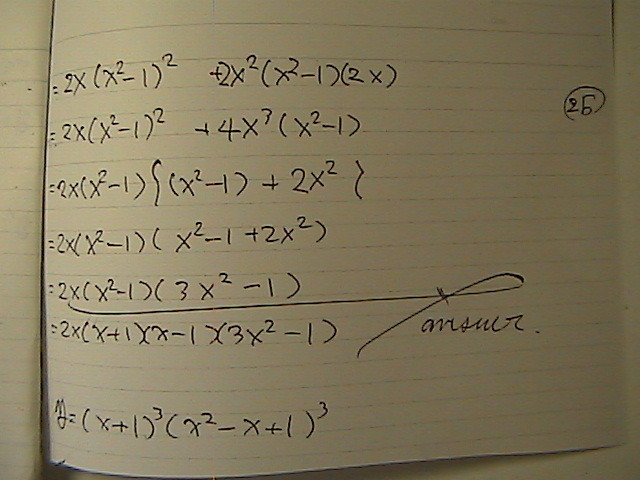 =2x(x²-1)² +2x²(x²-1)(2x)
25
=2x(x²-1)² +4x³(x²-1)
=2x(x²-1){(x²-1) + 2x²}
=2x(x²-1)(x²-1+2x²)
=2x(x²-1)(3x²-1)
=2x(x+1)(x-1)(3x²-1) answer.
y=(x+1)³(x²-x+1)³